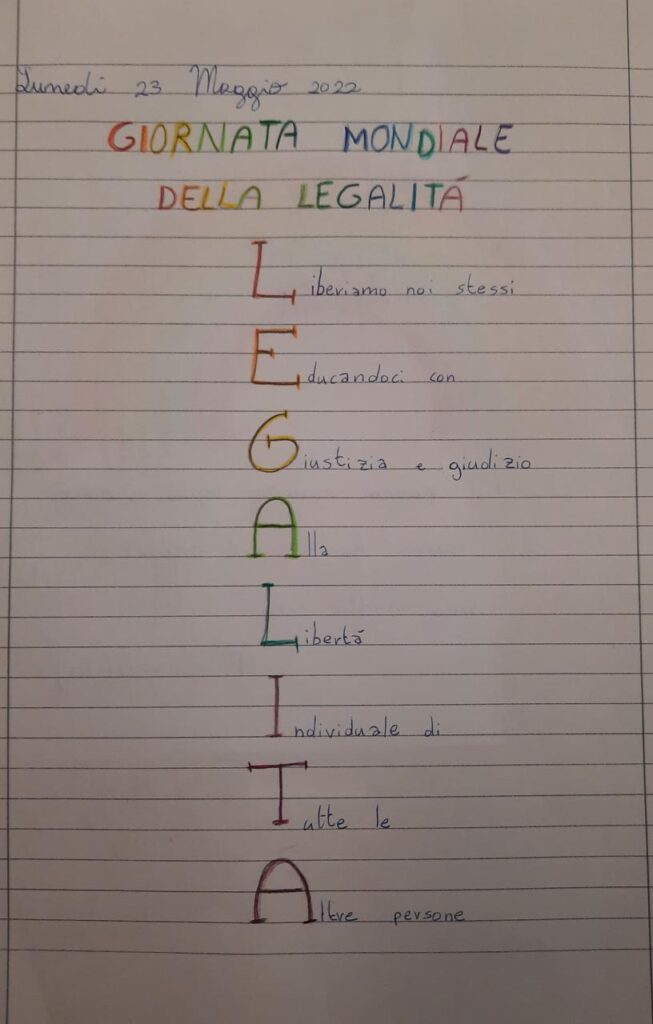 Lunedì 23 Maggio 2022
GIORNATA MONDIALE
DELLA LEGALITÁ
Liberiamo noi stessi
Educandoci con
Giustizia e giudizio
Alla
Libertá
Individuale di
Tutte le
Altre persone